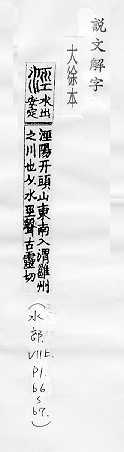 說文解字
大徐本
涇
水出
安定
涇陽开頭山東南入渭雝州
之川也从水巠聲古靈切
（水部.
P1.
b6
b7.）